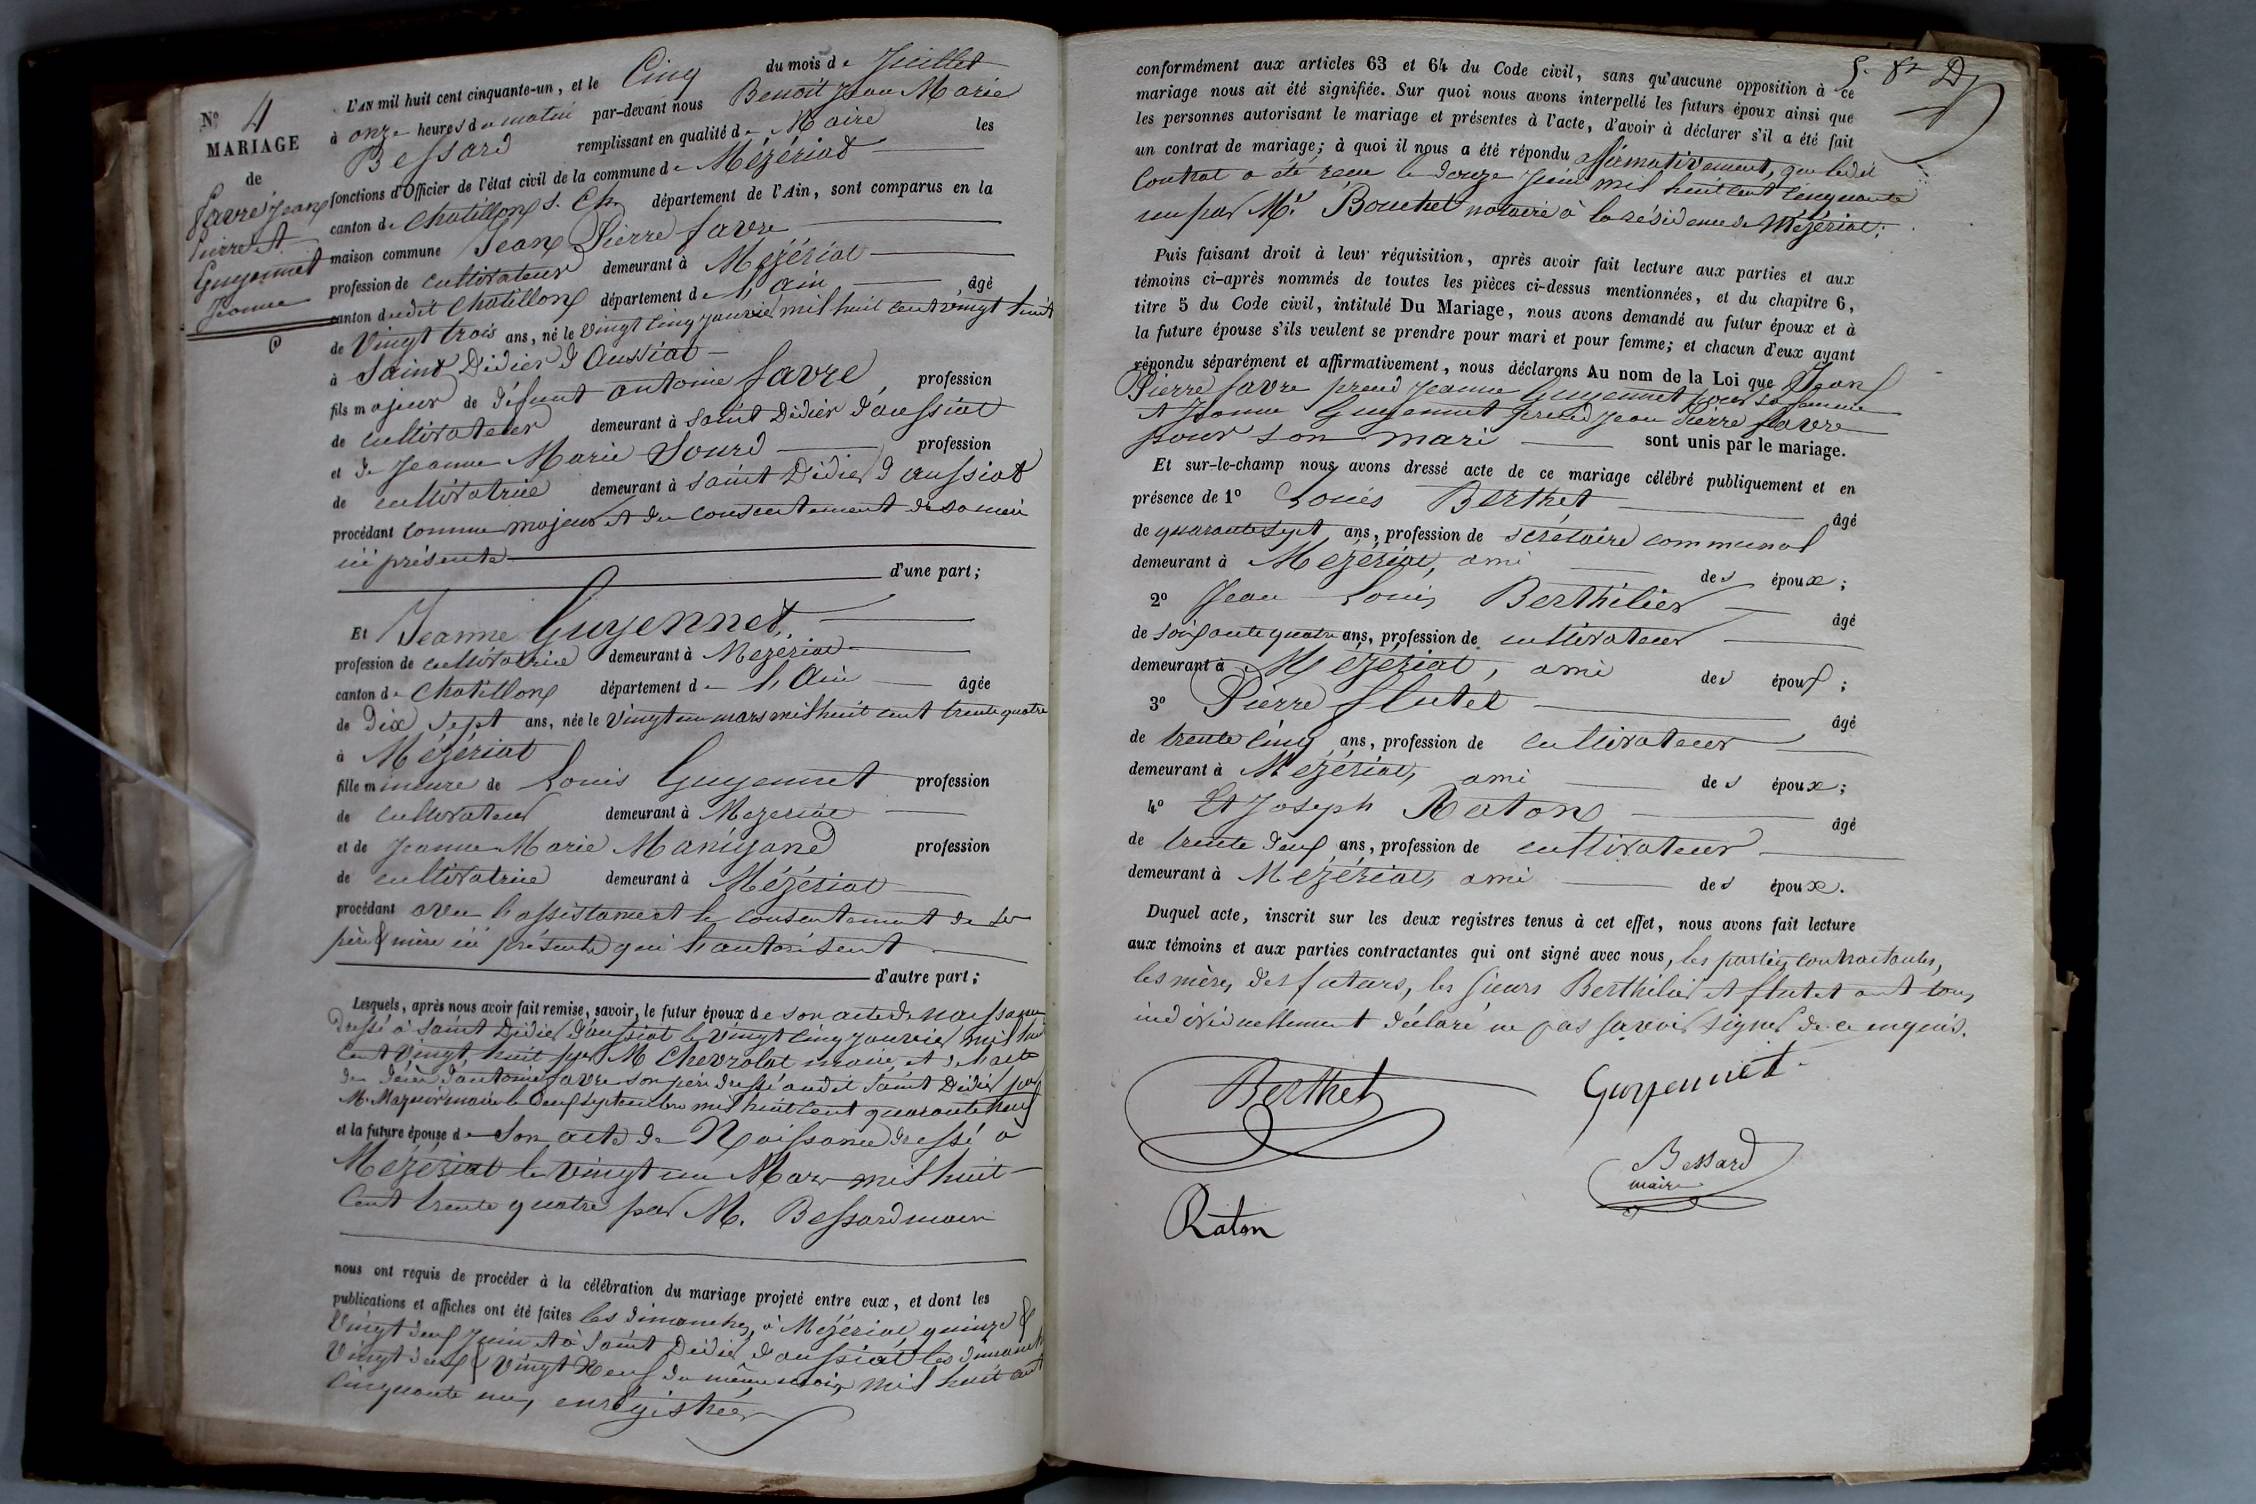 N° 4
MARIAGE
de
Favre Jean
Pierre et
Guyennet
Jeanne
L'AN mil huit cent cinquante-un, et le Cinq du mois de Juillet
à onze heures du matin par-devant nous Benoit Jean Marie
Bessard remplissant en qualité de Maire les
fonctions d'Officier de l'état civil de la commune de Mézériat
canton de Chatillon s. Ch. département de l'Ain, sont comparus en la
maison commune Jean Pierre Favre
profession de cultivateur demeurant à Mézériat
canton dudit Chatillon département de l'Ain âgé
de Vingt trois ans, né le Vingt cinq janvier mil huit cent vingt huit
à Saint Didier d'Aussiat
fils majeur de défunt Antoine Favre, profession
de cultivateur demeurant à Saint Didier d'aussiat
et de Jeanne Marie Sourd profession
de cultivatrice demeurant à Saint Didier d'aussiat
procédant comme majeur et du consentement de sa mère
ici présente
d'une part;
Et Jeanne Guyennet,
profession de cultivatrice demeurant à Mézériat
canton de Chatillon département de l'Ain âgée
de Dix sept ans, née le Vingt un mars mil huit cent trente quatre
à Mézériat
fille mineure de Louis Guyennet profession
de cultivateur demeurant à Mezeriat
et de Jeanne Marie Manigand profession
de cultivatrice demeurant à Mézériat
procédant avec l'assistance et le consentement de ses
père & mère ici présents qui l'autorisent
d'autre part;
Lesquels, après nous avoir fait remise, savoir, le futur époux de son acte de naissance
dressé à Saint Didier d'aussiat le vingt cinq janvier mil huit
cent vingt huit par M. Chevrolat maire, et de l'acte
de décès d'antoine Favre son père dressé audit Saint Didier par
M. maire le septembre mil huit cent quarante neuf
et la future épouse de Son acte de Naissance dressé à
Mézériat le vingt un Mars mil huit
cent trente quatre par M. Bessard maire
nous ont requis de procéder à la célébration du mariage projeté entre eux, et dont les
publications et affiches ont été faites les dimanches, à Mézériat quinze &
Vingt deux juin et à Saint Didier d'aussiat les dimanches
Vingt deux & Vingt Neuf du même mois, mil huit cent
cinquante un, enregistrées
5. 8r D
conformément aux articles 63 et 64 du Code civil, sans qu'aucune opposition à ce
mariage nous ait été signifiée. Sur quoi nous avons interpellé les futurs époux ainsi que
les personnes autorisant le mariage et présentes à l'acte, d'avoir à déclarer s'il a été fait
un contrat de mariage; à quoi il nous a été répondu affirmativement, que ledit
Contrat a été reçu le douze juin mil huit cent cinquante
un par Me. Bouchet notaire à la résidence de Mézériat;
Puis faisant droit à leur réquisition, après avoir fait lecture aux parties et aux
témoins ci-après nommés de toutes les pièces ci-dessus mentionnées, et du chapitre 6,
titre 5 du Code civil, intitulé Du Mariage, nous avons demandé au futur époux et à
la future épouse s'ils veulent se prendre pour mari et pour femme; et chacun d'eux ayant
répondu séparément et affirmativement, nous déclarons Au nom de la Loi que Jean
Pierre Favre prend Jeanne Guyennet pour sa femme
et Jeanne Guyennet prend Jean Pierre Favre
pour son mari sont unis par le mariage.
Et sur-le-champ nous avons dressé acte de ce mariage célébré publiquement et en
présence de 1° Louis Berthet âgé
de quarante sept ans, profession de secrétaire communal
demeurant à Mézériat, ami des époux;
2° Jean Louis Berthilier âgé
de soixante quatre ans, profession de cultivateur
demeurant à Mézériat, ami des époux;
3° Pierre Flutet âgé
de trente cinq ans, profession de cultivateur
demeurant à Mézériat, ami des époux;
4° Et Joseph Raton âgé
de trente deux ans, profession de cultivateur
demeurant à Mézériat, ami des époux.
Duquel acte, inscrit sur les deux registres tenus à cet effet, nous avons fait lecture
aux témoins et aux parties contractantes qui ont signé avec nous, les parties contractantes,
les mères des futurs, les sieurs Berthilier et Flutet ont tous
individuellement déclaré ne pas savoir signer de ce enquis.
Berthet
Guyennet
Bessard
maire
Raton